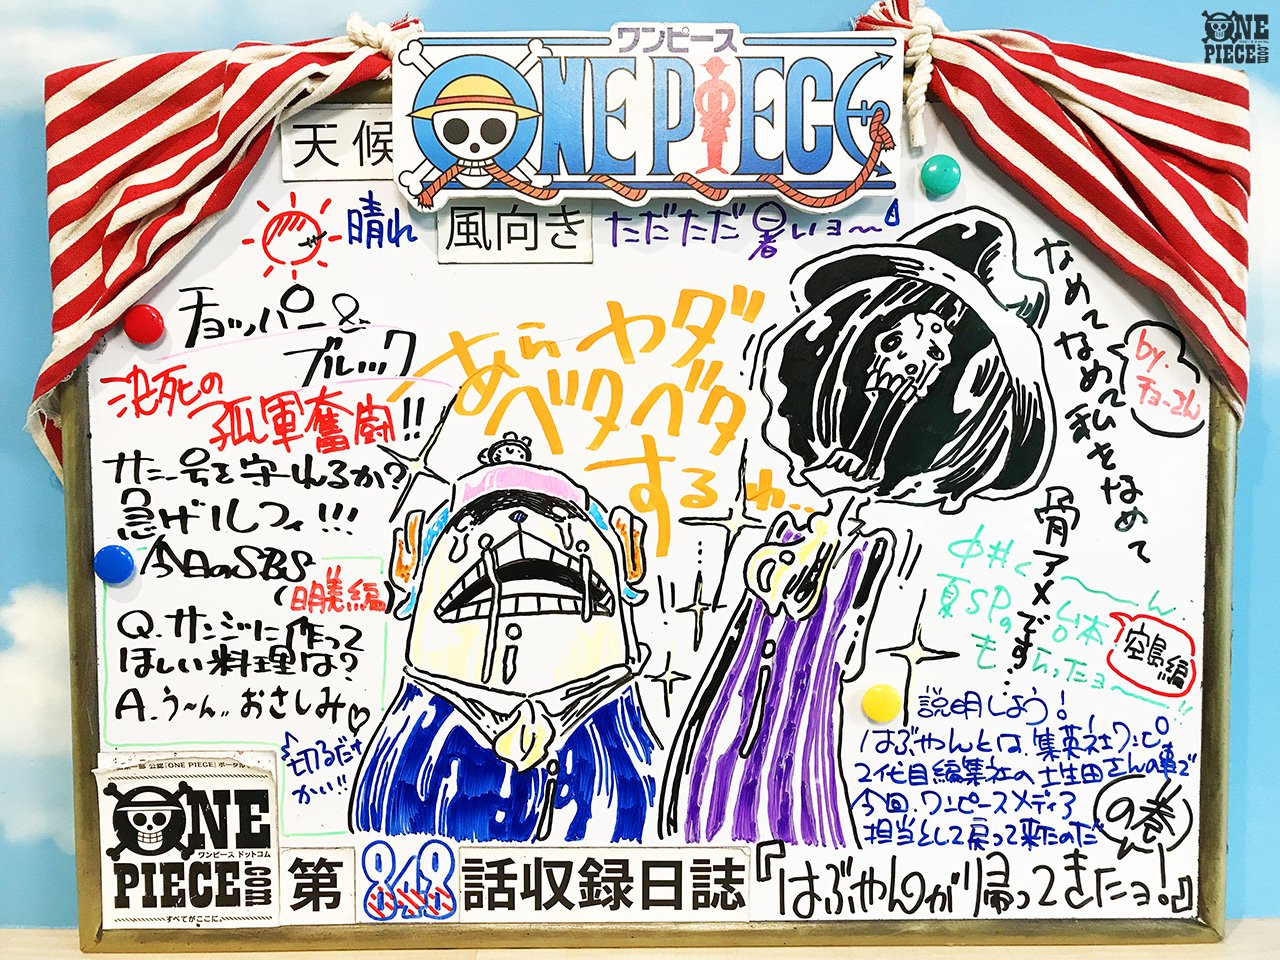 ONE
PIECE.com
ワンピース ドットコム
ワンピース
ONE PIECE
天候
晴れ
風向き
ただただ暑いヨ〜
チョッパー&
ブルック
決死の
孤軍奮闘!!
サニー号を守れるか?
急げルフィ!!!
今日のSBS
Q.サンジに作って
ほしい料理は?
A.う〜ん。おさしみ♡
切るだけ
かい!!
あらヤダ
ベタベタ
するわ…
なめてなめて私をなめて
骨アメです…
by.チョーさん
夏SPの台本
もらったヨ〜!!
空島編
説明しよう!
はぶやんとは、集英社ワンピ
2代目編集社の土生田さんの事で
今回、ワンピースメディア
担当として戻って来たのだ
の巻
ONE
ワンピース ドットコム
PIECE.com
すべてがここに
第848話収録日誌『はぶやんが帰ってきたヨ!』